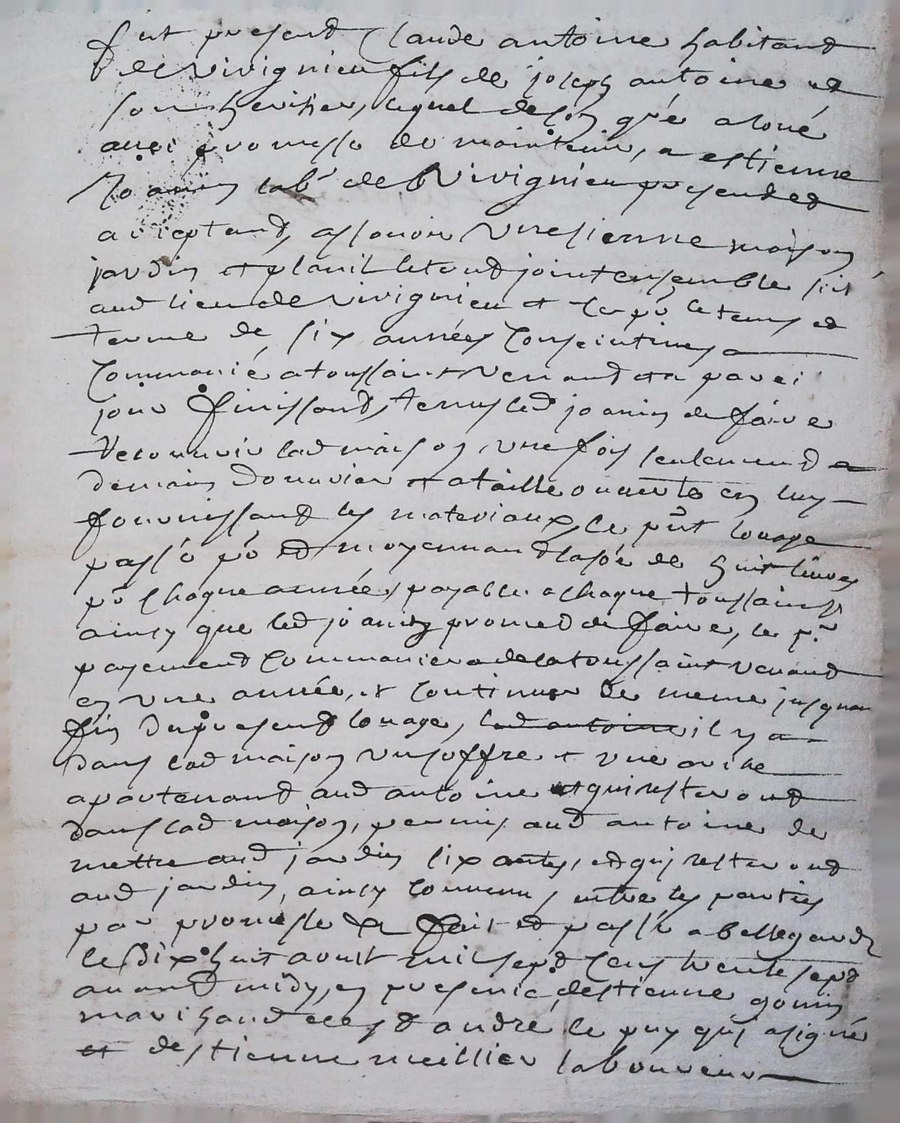 fut present Claude antoine habitand
de Vivignieu fils de joseph antoine et
son heritier, lequel de son gré a loué
avec promesse de maintenir, a estienne
Joanin labr de Vivignieu present et
acceptand, assavoir Une sienne maison
jardin et planil le tout joint ensemble sis
aud lieu de Vivignieu et ce po le tems et
terme de six années consecutives
Commancé a toussaint Venant et a pareil
jour finissand, tenu led joanin de faire
recouvrir lad maison, une fois seulement a
demains douvrier et a taille ouverte en luy
fournissand les materiaux, le pnt louage
passé po et moyennand la so de huit livres
po chaque année, payable a chaque toussaint
ainsy que led joanin promet de faire, le pr
payement Commancera de la toussaint Venant
en une année, et continuer de meme jusqua
fin du present louage, led antoine il y a
dans lad maison un coffre et une arche
apartenand aud antoine et qui resteront
dans lad maison, permis aud antoine de
mettre aud jardin six antes, et qui resteront
aud jardin, ainsy convenu entre les parties
par promesse & fait et passé a bellegarde
le dixhuit avril mil sept cens trente sept
avant midy, en presence, destienne gonin
marichand et de st andré le puy qui a signé
et destienne meillier laboureur